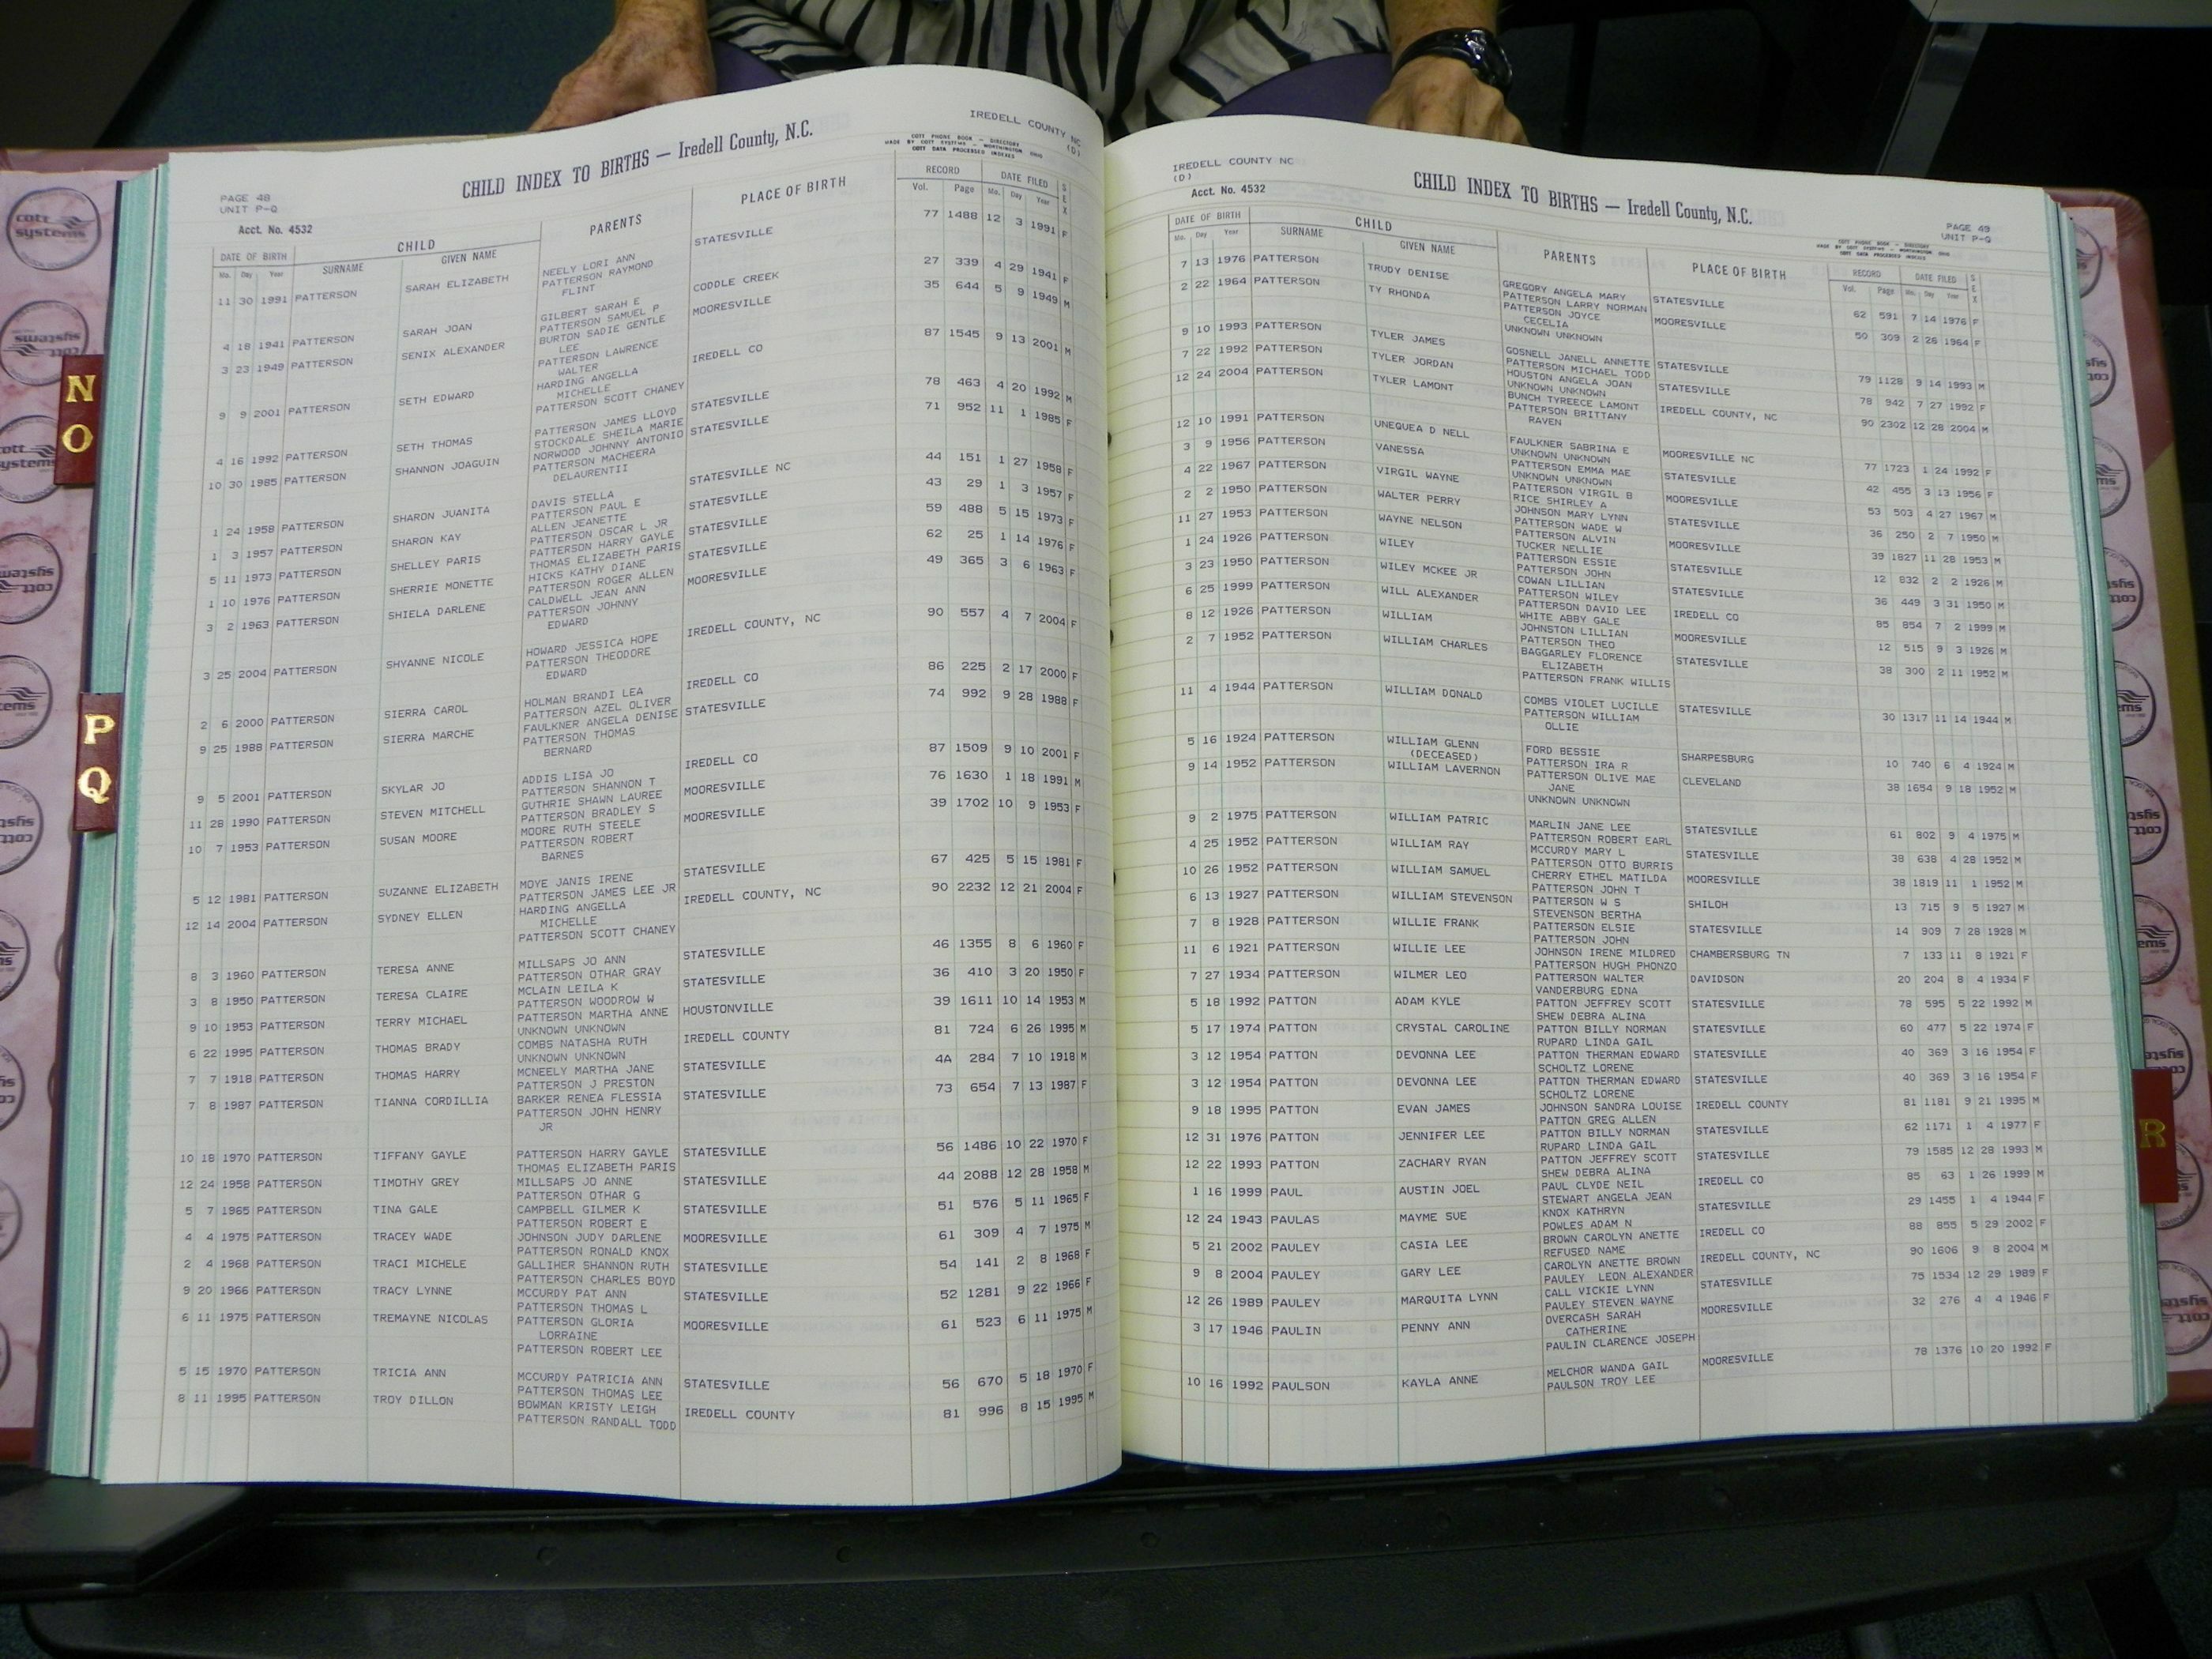 IREDELL COUNTY NC
(D)
CHILD INDEX TO BIRTHS — Iredell County, N.C.
COTT PHONE BOOK — DIRECTORY
MADE BY COTT SYSTEMS — WORTHINGTON OHIO
COTT DATA PROCESSED INDEXES
PAGE 48
UNIT P-Q
Acct. No. 4532
DATE OF BIRTH CHILD PARENTS PLACE OF BIRTH RECORD DATE FILED SEX
Mo. Day Year SURNAME GIVEN NAME Vol. Page Mo. Day Year
11 30 1991 PATTERSON SARAH ELIZABETH NEELY LORI ANN STATESVILLE 77 1488 12 3 1991 F
PATTERSON RAYMOND
FLINT
4 18 1941 PATTERSON SARAH JOAN GILBERT SARAH E CODDLE CREEK 27 339 4 29 1941 F
PATTERSON SAMUEL P
3 23 1949 PATTERSON SENIX ALEXANDER BURTON SADIE GENTLE MOORESVILLE 35 644 5 9 1949 M
LEE
PATTERSON LAWRENCE
WALTER
9 9 2001 PATTERSON SETH EDWARD HARDING ANGELLA IREDELL CO 87 1545 9 13 2001 M
MICHELLE
PATTERSON SCOTT CHANEY
4 16 1992 PATTERSON SETH THOMAS PATTERSON JAMES LLOYD STATESVILLE 78 463 4 20 1992 M
STOCKDALE SHEILA MARIE
10 30 1985 PATTERSON SHANNON JOAGUIN NORWOOD JOHNNY ANTONIO STATESVILLE 71 952 11 1 1985 F
PATTERSON MACHEERA
DELAURENTII
1 24 1958 PATTERSON SHARON JUANITA DAVIS STELLA STATESVILLE NC 44 151 1 27 1958 F
PATTERSON PAUL E
1 3 1957 PATTERSON SHARON KAY ALLEN JEANETTE STATESVILLE 43 29 1 3 1957 F
PATTERSON OSCAR L JR
5 11 1973 PATTERSON SHELLEY PARIS PATTERSON HARRY GAYLE STATESVILLE 59 488 5 15 1973 F
THOMAS ELIZABETH PARIS
1 10 1976 PATTERSON SHERRIE MONETTE HICKS KATHY DIANE STATESVILLE 62 25 1 14 1976 F
PATTERSON ROGER ALLEN
3 2 1963 PATTERSON SHIELA DARLENE CALDWELL JEAN ANN MOORESVILLE 49 365 3 6 1963 F
PATTERSON JOHNNY
EDWARD
3 25 2004 PATTERSON SHYANNE NICOLE HOWARD JESSICA HOPE IREDELL COUNTY, NC 90 557 4 7 2004 F
PATTERSON THEODORE
EDWARD
2 6 2000 PATTERSON SIERRA CAROL HOLMAN BRANDI LEA IREDELL CO 86 225 2 17 2000 F
PATTERSON AZEL OLIVER
9 25 1988 PATTERSON SIERRA MARCHE FAULKNER ANGELA DENISE STATESVILLE 74 992 9 28 1988 F
PATTERSON THOMAS
BERNARD
9 5 2001 PATTERSON SKYLAR JO ADDIS LISA JO IREDELL CO 87 1509 9 10 2001 F
PATTERSON SHANNON T
11 28 1990 PATTERSON STEVEN MITCHELL GUTHRIE SHAWN LAUREE MOORESVILLE 76 1630 1 18 1991 M
PATTERSON BRADLEY S
10 7 1953 PATTERSON SUSAN MOORE MOORE RUTH STEELE MOORESVILLE 39 1702 10 9 1953 F
PATTERSON ROBERT
BARNES
5 12 1981 PATTERSON SUZANNE ELIZABETH MOYE JANIS IRENE STATESVILLE 67 425 5 15 1981 F
PATTERSON JAMES LEE JR
12 14 2004 PATTERSON SYDNEY ELLEN HARDING ANGELLA IREDELL COUNTY, NC 90 2232 12 21 2004 F
MICHELLE
PATTERSON SCOTT CHANEY
8 3 1960 PATTERSON TERESA ANNE MILLSAPS JO ANN STATESVILLE 46 1355 8 6 1960 F
PATTERSON OTHAR GRAY
3 8 1950 PATTERSON TERESA CLAIRE MCLAIN LEILA K STATESVILLE 36 410 3 20 1950 F
PATTERSON WOODROW W
9 10 1953 PATTERSON TERRY MICHAEL PATTERSON MARTHA ANNE HOUSTONVILLE 39 1611 10 14 1953 M
UNKNOWN UNKNOWN
6 22 1995 PATTERSON THOMAS BRADY COMBS NATASHA RUTH IREDELL COUNTY 81 724 6 26 1995 M
UNKNOWN UNKNOWN
7 7 1918 PATTERSON THOMAS HARRY MCNEELY MARTHA JANE STATESVILLE 4A 284 7 10 1918 M
PATTERSON J PRESTON
7 8 1987 PATTERSON TIANNA CORDILLIA BARKER RENEA FLESSIA STATESVILLE 73 654 7 13 1987 F
PATTERSON JOHN HENRY
JR
10 18 1970 PATTERSON TIFFANY GAYLE PATTERSON HARRY GAYLE STATESVILLE 56 1486 10 22 1970 F
THOMAS ELIZABETH PARIS
12 24 1958 PATTERSON TIMOTHY GREY MILLSAPS JO ANNE STATESVILLE 44 2088 12 28 1958 M
PATTERSON OTHAR G
5 7 1965 PATTERSON TINA GALE CAMPBELL GILMER K STATESVILLE 51 576 5 11 1965 F
PATTERSON ROBERT E
4 4 1975 PATTERSON TRACEY WADE JOHNSON JUDY DARLENE MOORESVILLE 61 309 4 7 1975 M
PATTERSON RONALD KNOX
2 4 1968 PATTERSON TRACI MICHELE GALLIHER SHANNON RUTH STATESVILLE 54 141 2 8 1968 F
PATTERSON CHARLES BOYD
9 20 1966 PATTERSON TRACY LYNNE MCCURDY PAT ANN STATESVILLE 52 1281 9 22 1966 F
PATTERSON THOMAS L
6 11 1975 PATTERSON TREMAYNE NICOLAS PATTERSON GLORIA MOORESVILLE 61 523 6 11 1975 M
LORRAINE
PATTERSON ROBERT LEE
5 15 1970 PATTERSON TRICIA ANN MCCURDY PATRICIA ANN STATESVILLE 56 670 5 18 1970 F
PATTERSON THOMAS LEE
8 11 1995 PATTERSON TROY DILLON BOWMAN KRISTY LEIGH IREDELL COUNTY 81 996 8 15 1995 M
PATTERSON RANDALL TODD
IREDELL COUNTY NC
(D)
Acct. No. 4532
CHILD INDEX TO BIRTHS — Iredell County, N.C.
PAGE 49
UNIT P-Q
COTT PHONE BOOK — DIRECTORY
MADE BY COTT SYSTEMS — WORTHINGTON OHIO
COTT DATA PROCESSED INDEXES
DATE OF BIRTH CHILD PARENTS PLACE OF BIRTH RECORD DATE FILED SEX
Mo. Day Year SURNAME GIVEN NAME Vol. Page Mo. Day Year
7 13 1976 PATTERSON TRUDY DENISE GREGORY ANGELA MARY STATESVILLE 62 591 7 14 1976 F
PATTERSON LARRY NORMAN
2 22 1964 PATTERSON TY RHONDA PATTERSON JOYCE MOORESVILLE 50 309 2 26 1964 F
CECELIA
UNKNOWN UNKNOWN
9 10 1993 PATTERSON TYLER JAMES GOSNELL JANELL ANNETTE STATESVILLE 79 1128 9 14 1993 M
PATTERSON MICHAEL TODD
7 22 1992 PATTERSON TYLER JORDAN HOUSTON ANGELA JOAN STATESVILLE 78 942 7 27 1992 F
UNKNOWN UNKNOWN
12 24 2004 PATTERSON TYLER LAMONT BUNCH TYREECE LAMONT IREDELL COUNTY, NC 90 2302 12 28 2004 M
PATTERSON BRITTANY
RAVEN
12 10 1991 PATTERSON UNEQUEA D NELL FAULKNER SABRINA E MOORESVILLE NC 77 1723 1 24 1992 F
UNKNOWN UNKNOWN
3 9 1956 PATTERSON VANESSA PATTERSON EMMA MAE STATESVILLE 42 455 3 13 1956 F
UNKNOWN UNKNOWN
4 22 1967 PATTERSON VIRGIL WAYNE PATTERSON VIRGIL B MOORESVILLE 53 503 4 27 1967 M
RICE SHIRLEY A
2 2 1950 PATTERSON WALTER PERRY JOHNSON MARY LYNN STATESVILLE 36 250 2 7 1950 M
PATTERSON WADE W
11 27 1953 PATTERSON WAYNE NELSON PATTERSON ALVIN MOORESVILLE 39 1827 11 28 1953 M
TUCKER NELLIE
1 24 1926 PATTERSON WILEY PATTERSON ESSIE STATESVILLE 12 832 2 2 1926 M
PATTERSON JOHN
3 23 1950 PATTERSON WILEY MCKEE JR COWAN LILLIAN STATESVILLE 36 449 3 31 1950 M
PATTERSON WILEY
6 25 1999 PATTERSON WILL ALEXANDER PATTERSON DAVID LEE IREDELL CO 85 854 7 2 1999 M
WHITE ABBY GALE
8 12 1926 PATTERSON WILLIAM JOHNSTON LILLIAN MOORESVILLE 12 515 9 3 1926 M
PATTERSON THEO
2 7 1952 PATTERSON WILLIAM CHARLES BAGGARLEY FLORENCE STATESVILLE 38 300 2 11 1952 M
ELIZABETH
PATTERSON FRANK WILLIS
11 4 1944 PATTERSON WILLIAM DONALD COMBS VIOLET LUCILLE STATESVILLE 30 1317 11 14 1944 M
PATTERSON WILLIAM
OLLIE
5 16 1924 PATTERSON WILLIAM GLENN FORD BESSIE SHARPESBURG 10 740 6 4 1924 M
(DECEASED) PATTERSON IRA R
9 14 1952 PATTERSON WILLIAM LAVERNON PATTERSON OLIVE MAE CLEVELAND 38 1654 9 18 1952 M
JANE
UNKNOWN UNKNOWN
9 2 1975 PATTERSON WILLIAM PATRIC MARLIN JANE LEE STATESVILLE 61 802 9 4 1975 M
PATTERSON ROBERT EARL
4 25 1952 PATTERSON WILLIAM RAY MCCURDY MARY L STATESVILLE 38 638 4 28 1952 M
PATTERSON OTTO BURRIS
10 26 1952 PATTERSON WILLIAM SAMUEL CHERRY ETHEL MATILDA MOORESVILLE 38 1819 11 1 1952 M
PATTERSON JOHN T
6 13 1927 PATTERSON WILLIAM STEVENSON PATTERSON W S SHILOH 13 715 9 5 1927 M
STEVENSON BERTHA
7 8 1928 PATTERSON WILLIE FRANK PATTERSON ELSIE STATESVILLE 14 909 7 28 1928 M
PATTERSON JOHN
11 6 1921 PATTERSON WILLIE LEE JOHNSON IRENE MILDRED CHAMBERSBURG TN 7 133 11 8 1921 F
PATTERSON HUGH PHONZO
7 27 1934 PATTERSON WILMER LEO PATTERSON WALTER DAVIDSON 20 204 8 4 1934 F
VANDERBURG EDNA
5 18 1992 PATTON ADAM KYLE PATTON JEFFREY SCOTT STATESVILLE 78 595 5 22 1992 M
SHEW DEBRA ALINA
5 17 1974 PATTON CRYSTAL CAROLINE PATTON BILLY NORMAN STATESVILLE 60 477 5 22 1974 F
RUPARD LINDA GAIL
3 12 1954 PATTON DEVONNA LEE PATTON THERMAN EDWARD STATESVILLE 40 369 3 16 1954 F
SCHOLTZ LORENE
3 12 1954 PATTON DEVONNA LEE PATTON THERMAN EDWARD STATESVILLE 40 369 3 16 1954 F
SCHOLTZ LORENE
9 18 1995 PATTON EVAN JAMES JOHNSON SANDRA LOUISE IREDELL COUNTY 81 1181 9 21 1995 M
PATTON GREG ALLEN
12 31 1976 PATTON JENNIFER LEE PATTON BILLY NORMAN STATESVILLE 62 1171 1 4 1977 F
RUPARD LINDA GAIL
12 22 1993 PATTON ZACHARY RYAN PATTON JEFFREY SCOTT STATESVILLE 79 1585 12 28 1993 M
SHEW DEBRA ALINA
1 16 1999 PAUL AUSTIN JOEL PAUL CLYDE NEIL IREDELL CO 85 63 1 26 1999 M
STEWART ANGELA JEAN
12 24 1943 PAULAS MAYME SUE KNOX KATHRYN STATESVILLE 29 1455 1 4 1944 F
POWLES ADAM N
5 21 2002 PAULEY CASIA LEE BROWN CAROLYN ANETTE IREDELL CO 88 855 5 29 2002 F
REFUSED NAME
9 8 2004 PAULEY GARY LEE CAROLYN ANETTE BROWN IREDELL COUNTY, NC 90 1606 9 8 2004 M
PAULEY LEON ALEXANDER
12 26 1989 PAULEY MARQUITA LYNN CALL VICKIE LYNN STATESVILLE 75 1534 12 29 1989 F
PAULEY STEVEN WAYNE
3 17 1946 PAULIN PENNY ANN OVERCASH SARAH MOORESVILLE 32 276 4 4 1946 F
CATHERINE
PAULIN CLARENCE JOSEPH
10 16 1992 PAULSON KAYLA ANNE MELCHOR WANDA GAIL MOORESVILLE 78 1376 10 20 1992 F
PAULSON TROY LEE
N
O
P
Q
R
cott
systems